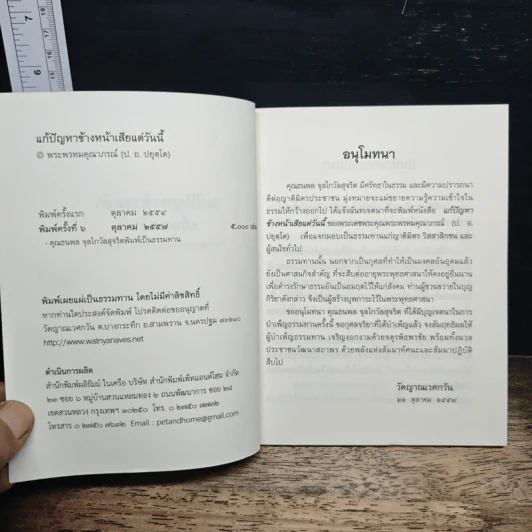 7
6
แก้ปัญหาข้างหน้าเสียแต่วันนี้
© พระพรหมคุณาภรณ์ (ป. อ. ปยุตฺโต)
พิมพ์ครั้งแรก ตุลาคม ๒๕๕๔
พิมพ์ครั้งที่ ๖ ตุลาคม ๒๕๕๗ ๕,๐๐๐ เล่ม
- คุณธนพล จุลไกวัลสุจริตพิมพ์เป็นธรรมทาน
พิมพ์เผยแผ่เป็นธรรมทาน โดยไม่มีค่าลิขสิทธิ์
หากท่านใดประสงค์จัดพิมพ์ โปรดติดต่อขออนุญาตที่
วัดญาณเวศกวัน ต.บางกระทึก อ.สามพราน จ.นครปฐม ๗๓๒๑๐
http://www.watnyanaves.net
ดำเนินการผลิต
สำนักพิมพ์ผลิธัมม์ ในเครือ บริษัท สำนักพิมพ์เพ็ทแอนด์โฮม จำกัด
๒๓ ซอย ๖ หมู่บ้านสวนแหลมทอง ๒ ถนนพัฒนาการ ซอย ๒๘
เขตสวนหลวง กรุงเทพฯ ๑๐๒๕๐ โทร. ๐ ๒๗๕๐ ๗๗๓๒
โทรสาร Email : petandhome@gmail.com
อนุโมทนา
คุณธนพล จุลไกวัลสุจริต มีศรัทธาในธรรม และมีความปรารถนา
ดีต่อญาติมิตรประชาชน มุ่งหมายจะแผ่ขยายความรู้ความเข้าใจใน
ธรรมให้กว้างออกไป ได้แจ้งฉันทเจตนาที่จะพิมพ์หนังสือ แก้ปัญหา
ข้างหน้าเสียแต่วันนี้ ของพระเดชพระคุณพระพรหมคุณาภรณ์ (ป. อ.
ปยุตฺโต) เพื่อแจกมอบเป็นธรรมทานแก่ญาติมิตร วิสสาสิกชน และ
ผู้สนใจทั่วไป
ธรรมทานนั้น นอกจากเป็นกุศลที่ทำให้เป็นมงคลอันอุดมแล้ว
ยังเป็นศาสนกิจสำคัญ ที่จะสืบต่ออายุพระพุทธศาสนาให้คงอยู่ยืนนาน
เพื่อดำรงรักษาธรรมอันเป็นอมฤตไว้ให้แก่สังคม ท่านผู้ขวนขวายในบุญ
กิริยาดังกล่าว จึงเป็นผู้สร้างบุพการะไว้ในพระพุทธศาสนา
ขออนุโมทนา คุณธนพล จุลไกวัลสุจริต ที่ได้มีบุญเจตนาในการ
บำเพ็ญธรรมทานครั้งนี้ ขอกุศลจริยาที่ได้บำเพ็ญแล้ว จงสัมฤทธิผลให้
ผู้บำเพ็ญธรรมทาน เจริญงอกงามด้วยจตุรพิธพรชัย พร้อมทั้งมวล
ประชาชนวัฒนาสถาพร ด้วยพลังแห่งสัมมาทัศนะและสัมมาปฏิบัติ
สืบไป
วัดญาณเวศกวัน
๒๒ ตุลาคม ๒๕๕๗